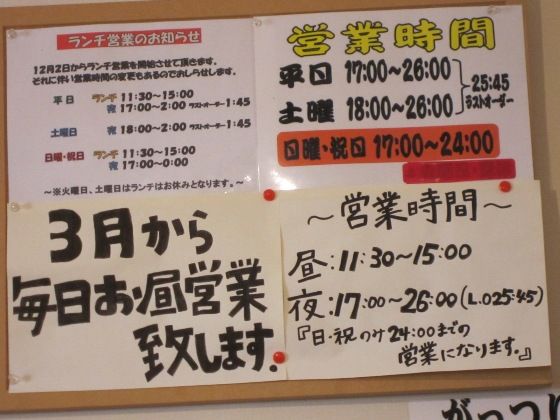 ランチ営業のお知らせ
12月2日からランチ営業を開始させて頂きます。
それに伴い営業時間の変更もあるのでおしらせします。
平日 ランチ 11:30～15:00
夜 17:00～2:00 ラストオーダー1:45
土曜日 夜 18:00～2:00 ラストオーダー1:45
日曜・祝日 ランチ 11:30～15:00
夜 17:00～0:00
～※火曜日、土曜日はランチはお休みとなります。～
営業時間
平日 17:00～26:00
土曜 18:00～26:00
25:45
ラストオーダー
日曜・祝日 17:00～24:00
3月から
毎日お昼営業
致します.
～営業時間～
昼:11:30～15:00
夜:17:00～26:00(L.O25:45)
『日・祝のみ24:00までの
営業になります。』
がっつり